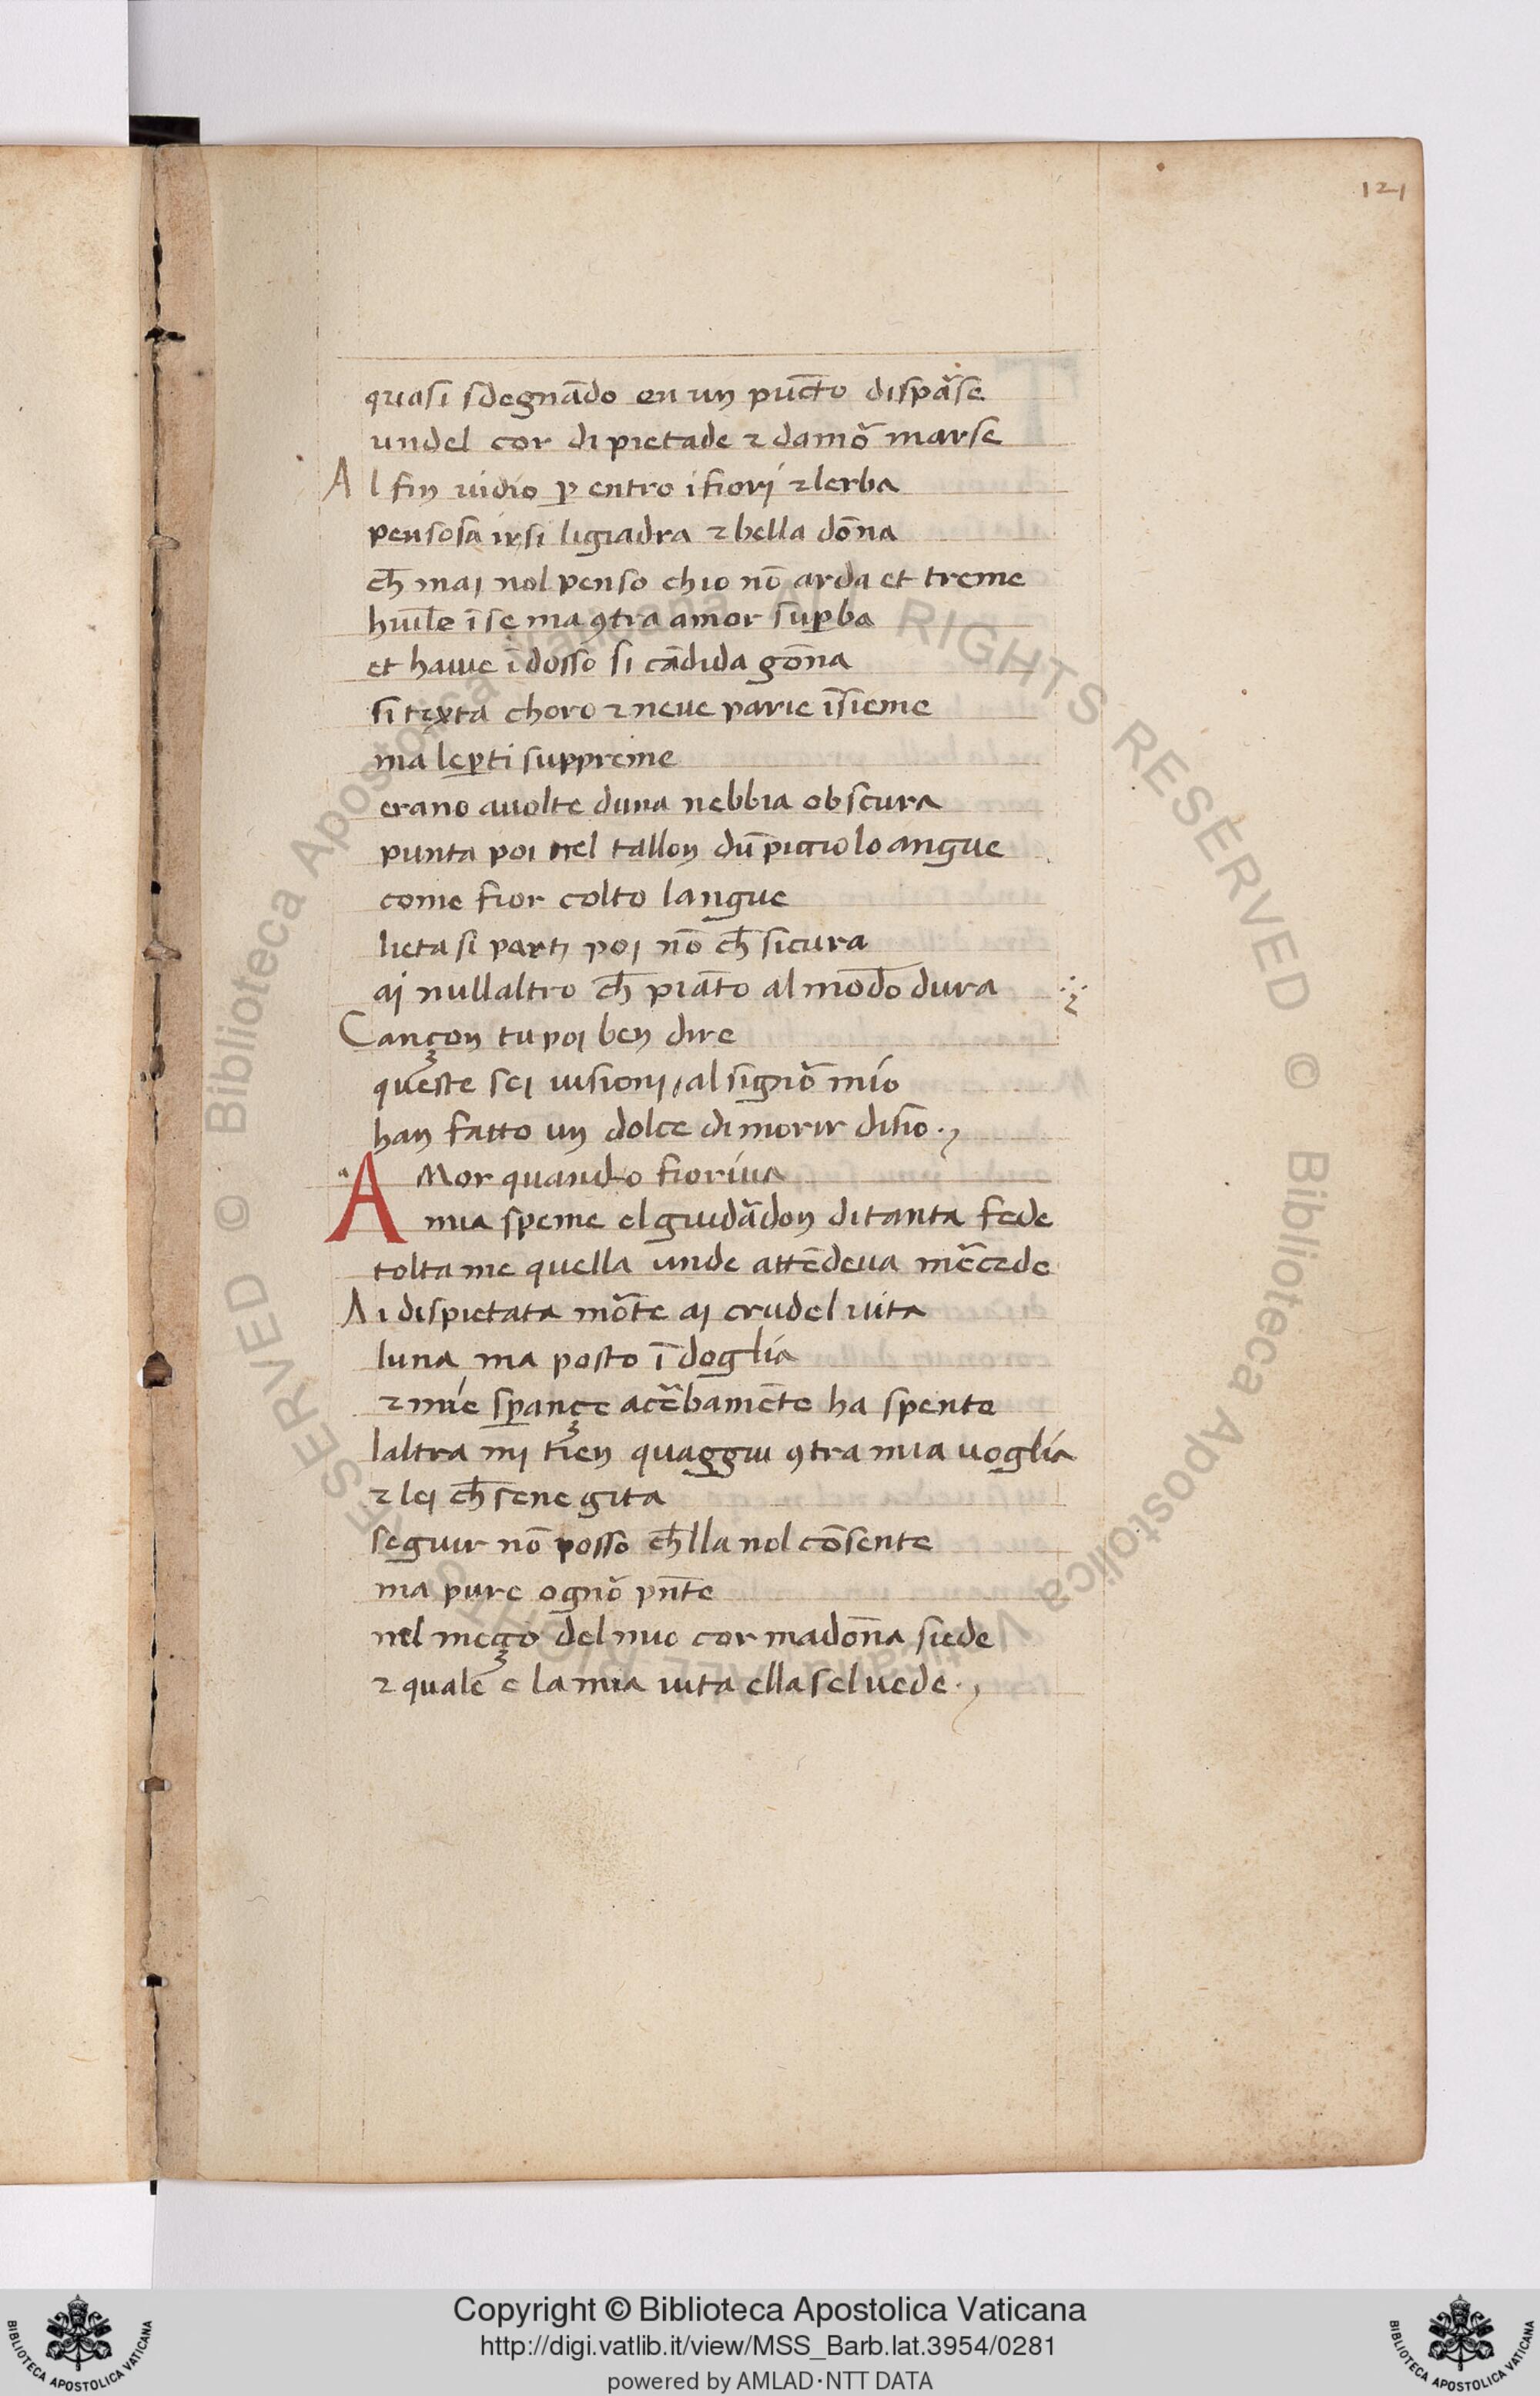 121
quasi sdegnādo en un pūcto dispãse
undel cor di pietade ⁊ damõ marse
Al fin uidio ꝑ entro i fiori ⁊ lerba
pensosa irsi ligiadra ⁊ bella dōna
ch̄ mai nol penso chio nō arda et treme
huīle ī se ma ꝯtra amor suꝑba
et hauue ī dosso si cādida gōna
si texta choro ⁊ neue parie īsieme
ma leꝑti suppreme
erano auolte duna nebbia obscura
punta poi nel tallon dū picciolo angue
come fior colto langue
lieta si parti poi nō ch̄ sicura
ai nullaltro ch̄ piāto al mōdo dura
Cançon tu poi ben dire
queste sei uisioni al signõ mio
han fatto un dolce di morir disīo
AMor quando fioriua
mia speme el guidãdon di tanta fede
tolta me quella unde attēdeua mẽcede
Ai dispietata mõte ai crudel uita
luna ma posto ī doglia
⁊ mie sꝑançe acẽbamēte ha spente
laltra mi tien quaggiu ꝯtra mia uoglia
⁊ lei ch̄ sene gita
seguir nō posso ch̄lla nol cōsente
ma pure ognõ pn̄te
nel meço del mio cor madōna siede
⁊ quale e la mia uita ella sel uede
Copyright © Biblioteca Apostolica Vaticana
http://digi.vatlib.it/view/MSS_Barb.lat.3954/0281
powered by AMLAD·NTT DATA
BIBLIOTECA APOSTOLICA VATICANA
BIBLIOTECA APOSTOLICA VATICANA